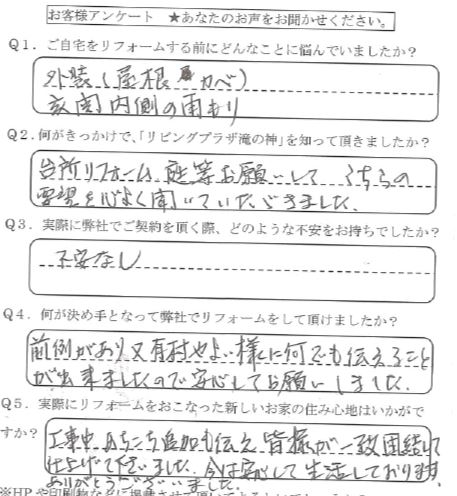 お客様アンケート ★あなたのお声をお聞かせください。
Q1. ご自宅をリフォームする前にどんなことに悩んでいましたか?
外装(屋根 カベ)
玄関内側の雨もり
Q2.何がきっかけで、「リビングプラザ滝の神」を知って頂きましたか?
台所リフォーム、庭等お願いして こちらの
要望を心よく聞いていただきました。
Q3. 実際に弊社でご契約を頂く際、どのような不安をお持ちでしたか?
不安なし
Q4. 何が決め手となって弊社でリフォームをして頂けましたか?
前例があり又有村 様に何でも伝えること
が出来ましたので安心してお願いしました。
Q5. 実際にリフォームをおこなった新しいお家の住み心地はいかがで
すか?
工事中あちこち追加も伝え皆様が一致団結して
仕上げて下さいました。今は安心して生活しております。
ありがとうございました。
※HPや印刷物などに掲載させて頂いてよろしいでしょうか